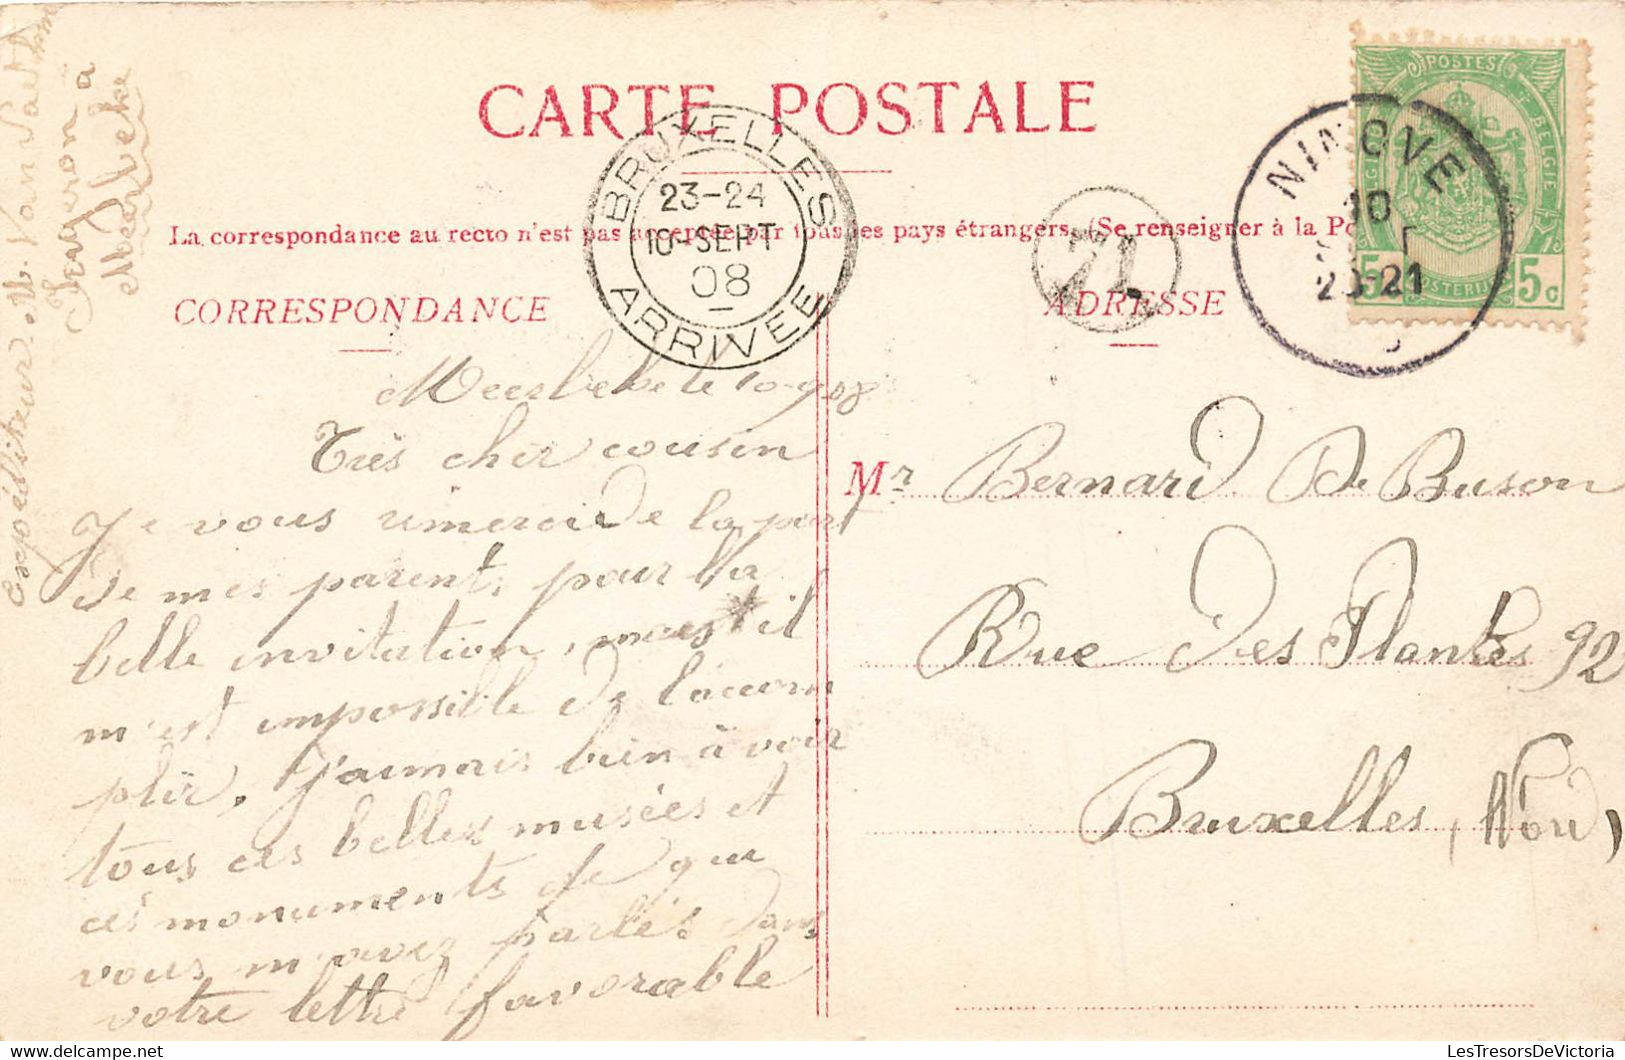 CARTE POSTALE
La correspondance au recto n'est pas acceptée par tous les pays étrangers. (Se renseigner à la Po
CORRESPONDANCE
ADRESSE
BRUXELLES
23-24
10-SEPT
08
ARRIVÉE
71
NINOVE
10
20-21
POSTES
5 5c
Meerbeke le 10-9-08
Très cher cousin
Je vous rimercie de la part
de mes parents pour la
belle invitation, mais il
m'est impossible de l'accom
plir. J'aimais bien à voir
tous ces belles musées et
ces monuments de que
vous m'avez parlés dans
votre lettre favorable
Expéditeur. M. Van
à
Meerbeke
Mr Bernard De Buson
Rue Des Plantes 92
Bruxelles (Nord)
LesTresorsDeVictoria
www.LesTresorsDeVictoria.com